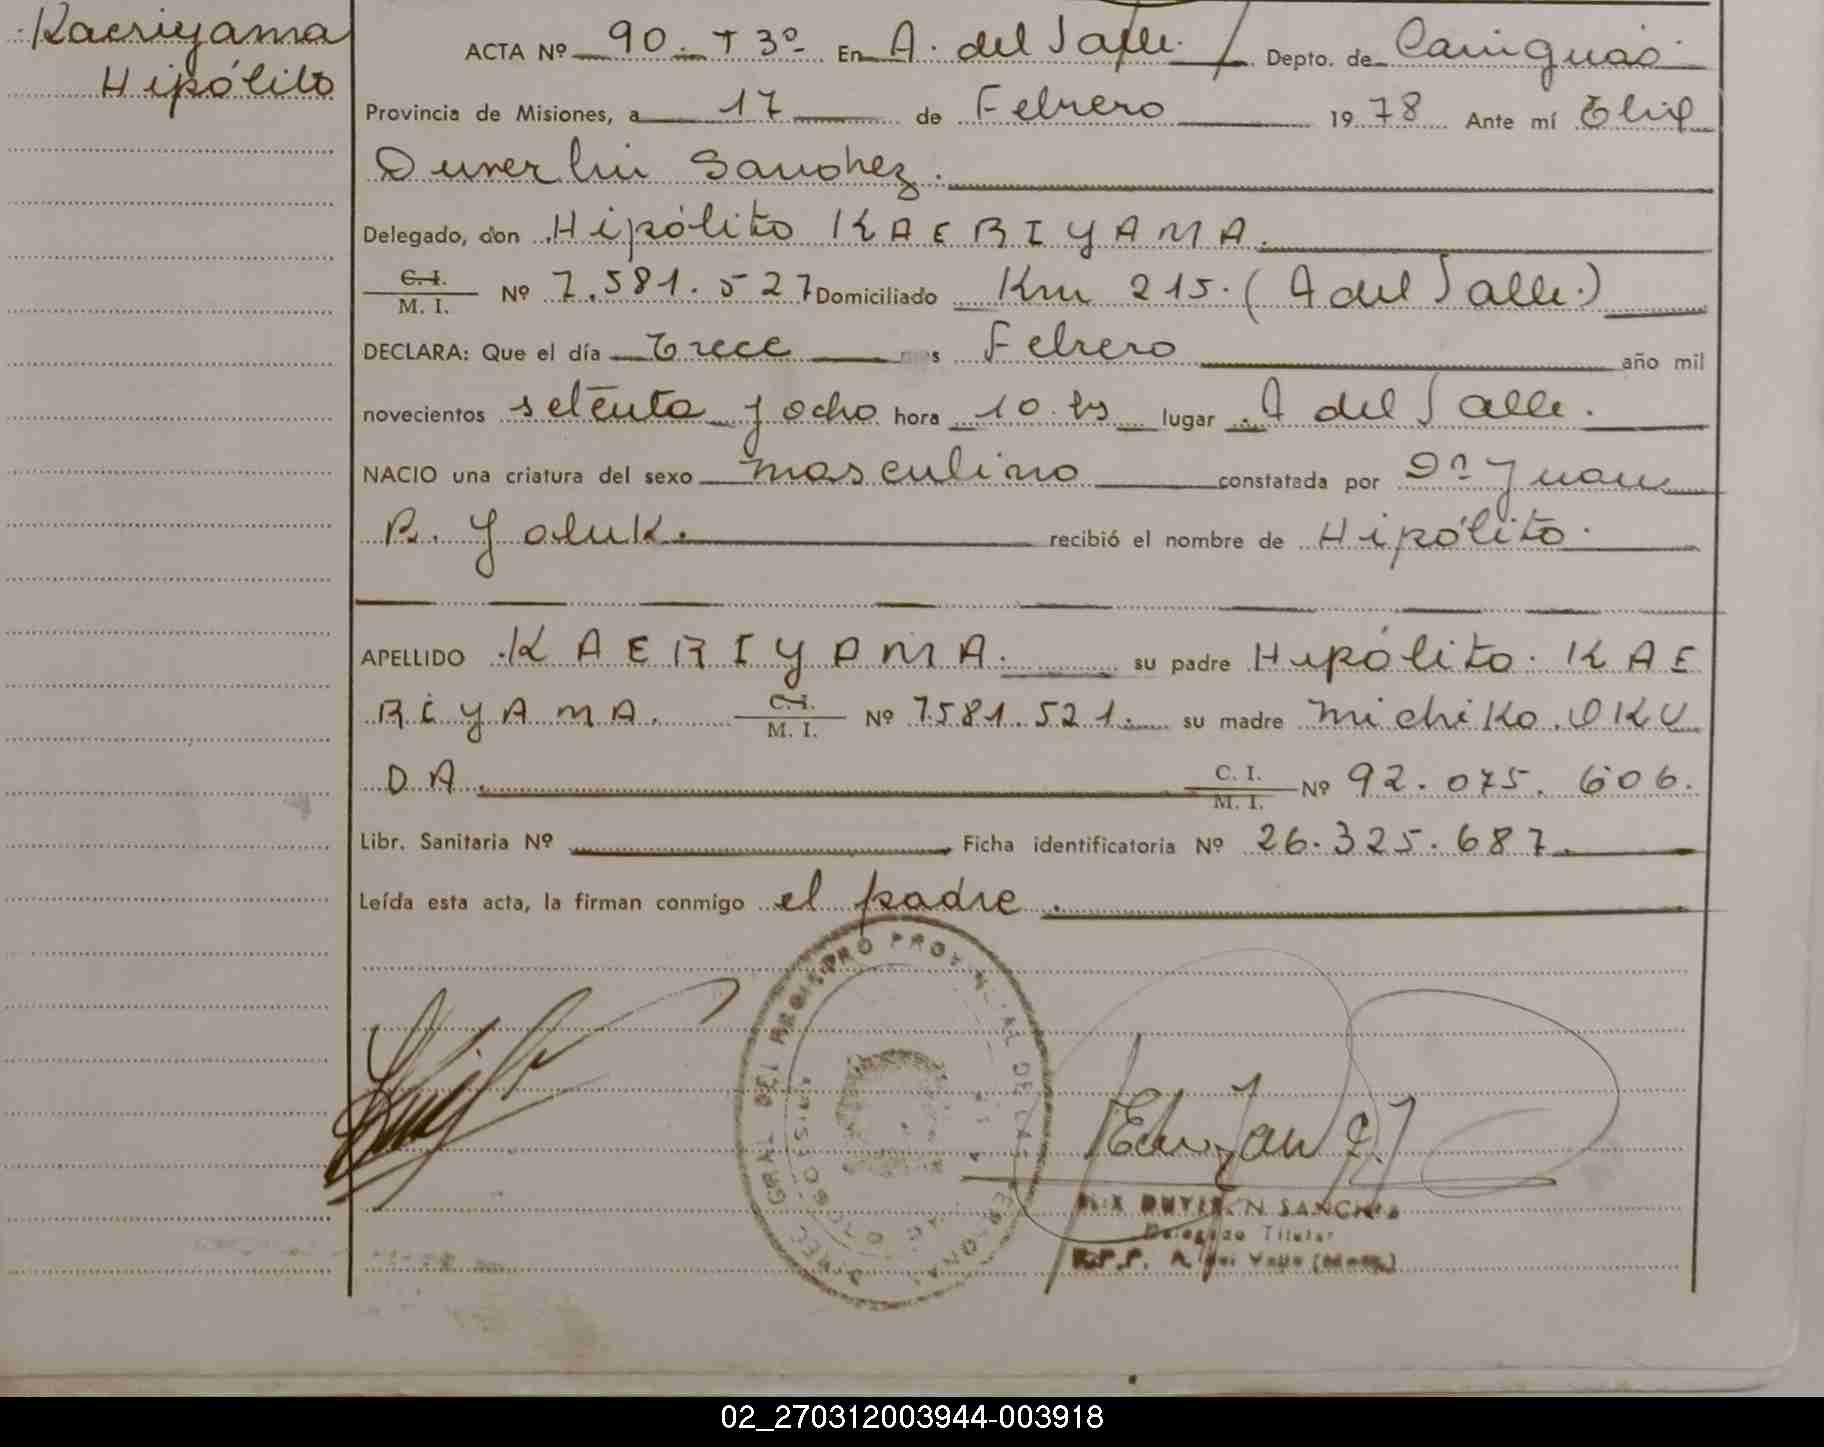 Kaeriyama
Hipólito
ACTA Nº 90. T 3º En A. del Valle. Depto. de Cainguás
Provincia de Misiones, a 17 de Febrero 1978 Ante mí Elix
Duverlin Sanchez.
Delegado, don Hipólito KAERIYAMA.
C. I. / M. I. Nº 7.581.527 Domiciliado Km 215. (A del Valle.)
DECLARA: Que el día trece mes Febrero año mil
novecientos setenta y ocho hora 10. hs lugar A del Valle.
NACIO una criatura del sexo masculino constatada por Dn Juan
R. Yoluk. recibió el nombre de Hipólito.
APELLIDO KAERIYAMA. su padre Hipólito. KAE
RIYAMA. C. I. / M. I. Nº 7.581.521. su madre Michiko. OKU
DA. C. I. / M. I. Nº 92.075.606.
Libr. Sanitaria Nº Ficha identificatoria Nº 26.325.687.
Leída esta acta, la firman conmigo el padre.
REGISTRO PROVINCIAL DE LAS PERSONAS
SANCHEZ
Delegado Titular
R.P.P. A. del Valle
02_270312003944-003918